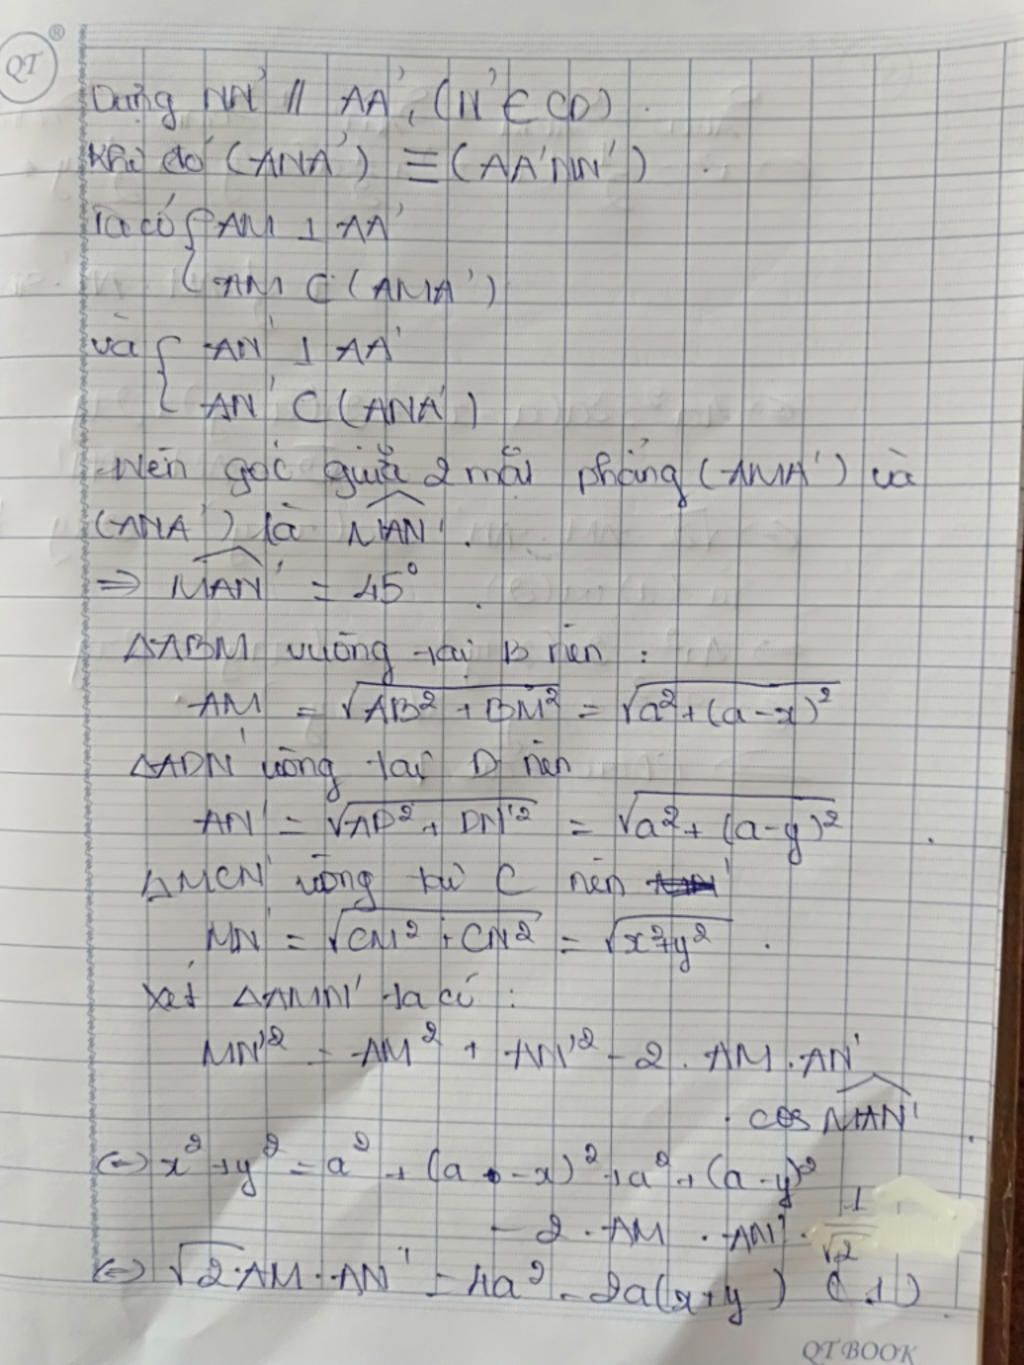 QT ®
Dựng NN' // AA', (N' ∈ CD).
Khi đó (ANA') ≡ (AA'NN').
Ta có { AM ⊥ AA'
AM ⊂ (AMA')
và { AN' ⊥ AA'
AN' ⊂ (ANA')
Nên góc giữa 2 mặt phẳng (AMA') và
(ANA') là MAN'.
⇒ MAN' = 45°.
ΔABM vuông tại B nên :
AM = √(AB² + BM²) = √(a² + (a-x)²)
ΔADN' vuông tại D nên
AN' = √(AD² + DN'²) = √(a² + (a-y)²).
ΔMCN' vuông tại C nên
MN' = √(CM² + CN'²) = √(x²+y²).
Xét ΔAMN' ta có :
MN'² = AM² + AN'² - 2. AM. AN'
. cos MAN'.
(=) x² + y² = a² + (a - x)² + a² + (a - y)²
- 2 . AM . AN' . 1/√2
(=) √2.AM.AN' = 4a² - 2a(x+y) (1)
QT BOOK